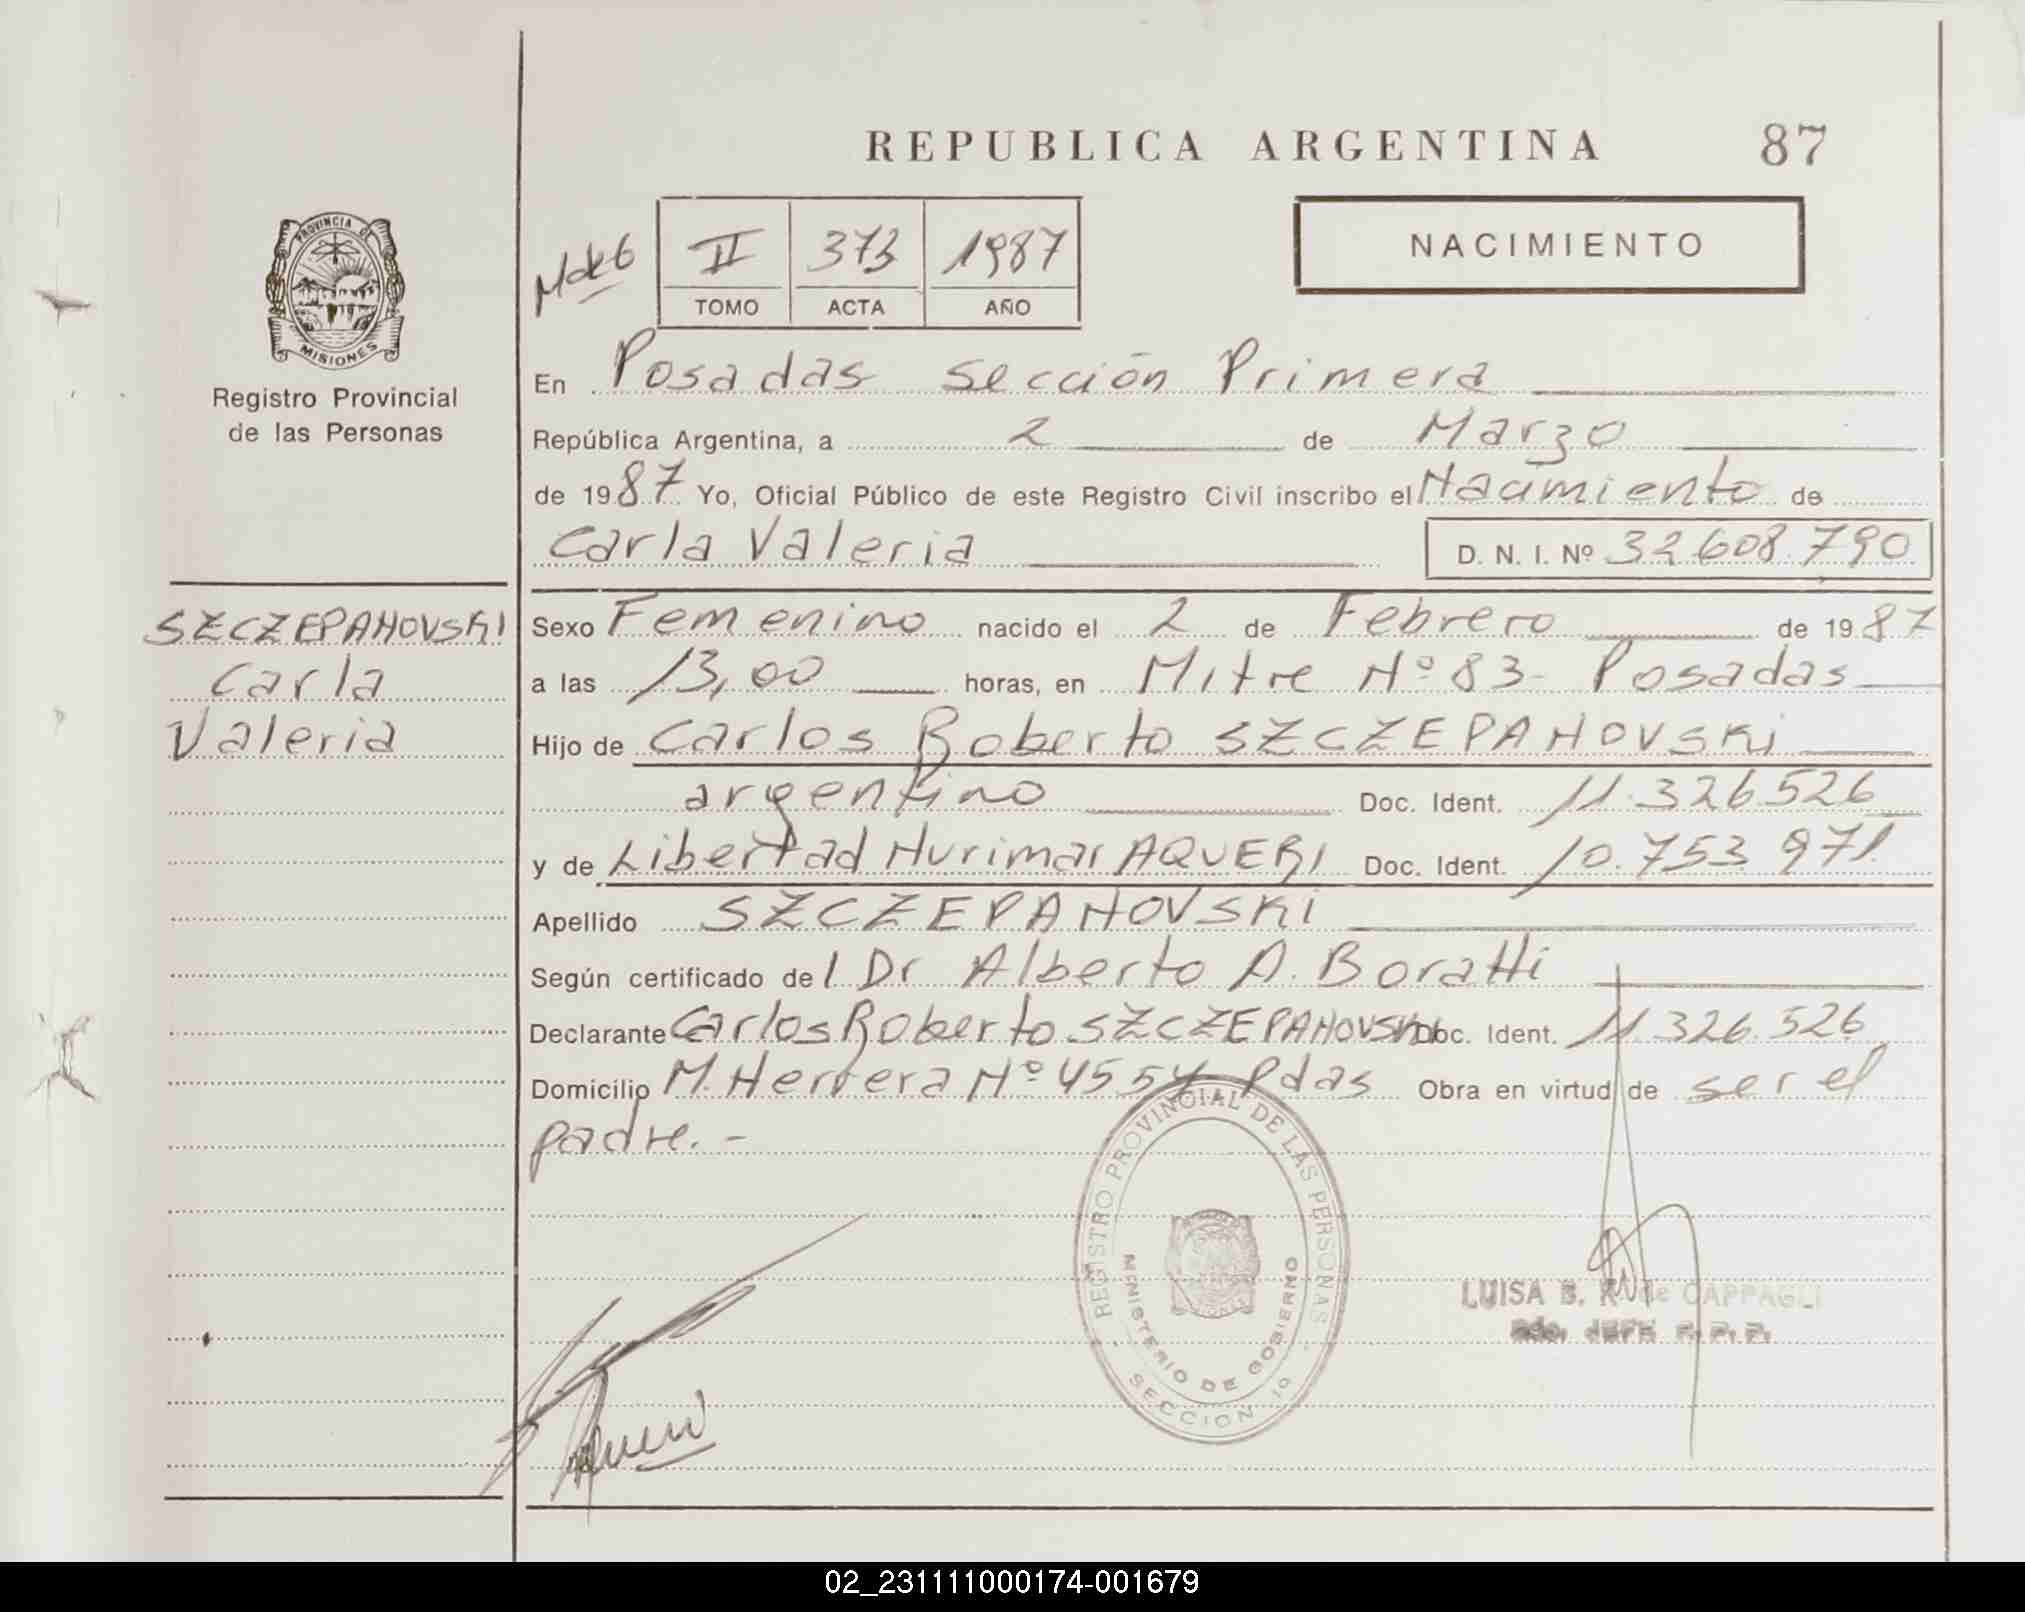 REPUBLICA ARGENTINA 87
PROVINCIA DE
MISIONES
Registro Provincial
de las Personas
II 373 1987
TOMO ACTA AÑO
NACIMIENTO
En Posadas Sección Primera
República Argentina, a 2 de Marzo
de 1987 Yo, Oficial Público de este Registro Civil inscribo el Nacimiento de
Carla Valeria D. N. I. Nº 32.608.790
SZCZEPANOVSKI
Carla
Valeria
Sexo Femenino nacido el 2 de Febrero de 1987
a las 13,00 horas, en Mitre Nº 83- Posadas
Hijo de Carlos Roberto SZCZEPANOVSKI
argentino Doc. Ident. 11.326.526
y de Libertad Nurimar AQUERI Doc. Ident. 10.753.971
Apellido SZCZEPANOVSKI
Según certificado del Dr Alberto A. Boratti
Declarante Carlos Roberto SZCZEPANOVSKI Doc. Ident. 11.326.526
Domicilio M. Herrera Nº 4554 Pdas Obra en virtud de ser el
padre.-
REGISTRO PROVINCIAL DE LAS PERSONAS
MINISTERIO DE GOBIERNO
SECCION 1º
LUISA B. K. de CAPPAGLI
JEFE R. P. P.
02_231111000174-001679